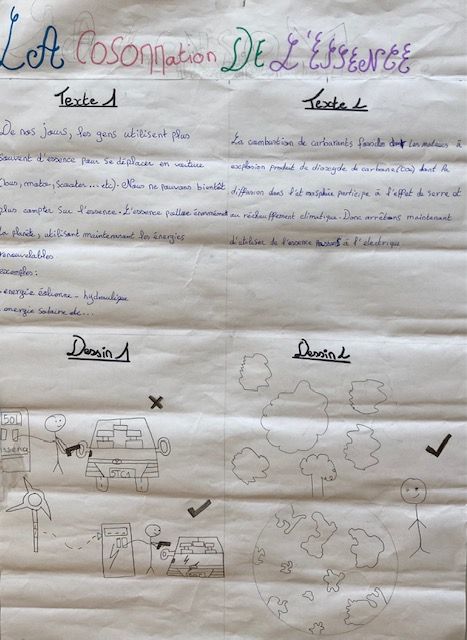 LA COSONMation DE L'ESSENCE
Texte 1
De nos jours, les gens utilisent plus
souvent d'essence pour se déplacer en voiture
(bus, moto, scooter ... etc). Nous ne pouvons bientôt
plus compter sur l'essence. L'essence pollue énormément
la planète, utilisant maintenant les énergies
renouvelables
exemples:
. énergie éolienne - hydraulique
. energie solaire etc...
Texte 2
La combustion de carburants fossiles dont les moteurs à
explosion produit de dioxyde de carbone (CO2) dont la
diffusion dans l'atmosphère participe à l'effet de serre et
au réchauffement climatique. Donc arrêtons maintenant
d'utiliser de l'essence passons à l'électrique
Dessin 1
50L
STC1
Dessin 2